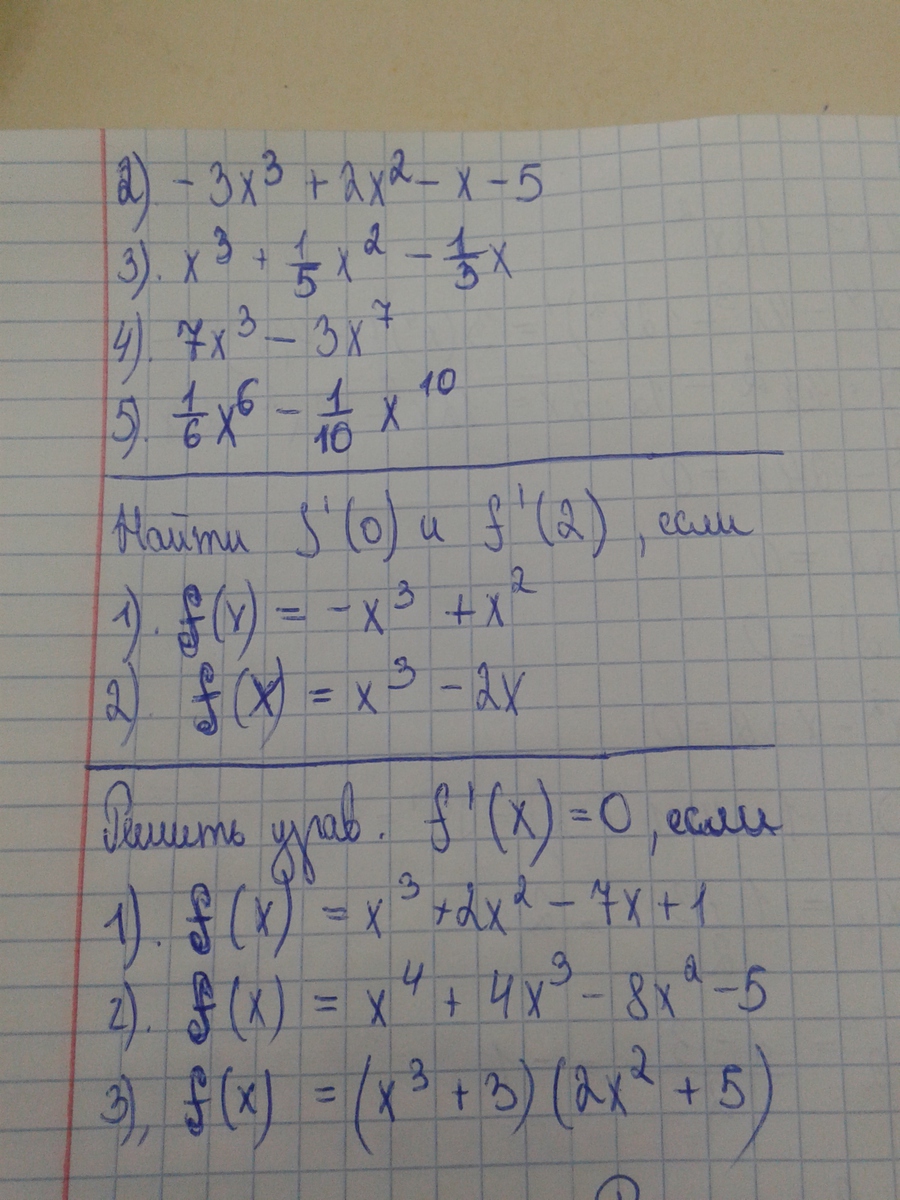 2). -3x³ + 2x² - x - 5
3). x³ + 1/5 x² - 1/3 x
4). 7x³ - 3x⁷
5). 1/6 x⁶ - 1/10 x¹⁰
Найти f'(0) и f'(2), если
1). f(x) = -x³ + x²
2). f(x) = x³ - 2x
Решить урав. f'(x) = 0, если
1). f(x) = x³ + 2x² - 7x + 1
2). f(x) = x⁴ + 4x³ - 8x² - 5
3), f(x) = (x³ + 3)(2x² + 5)